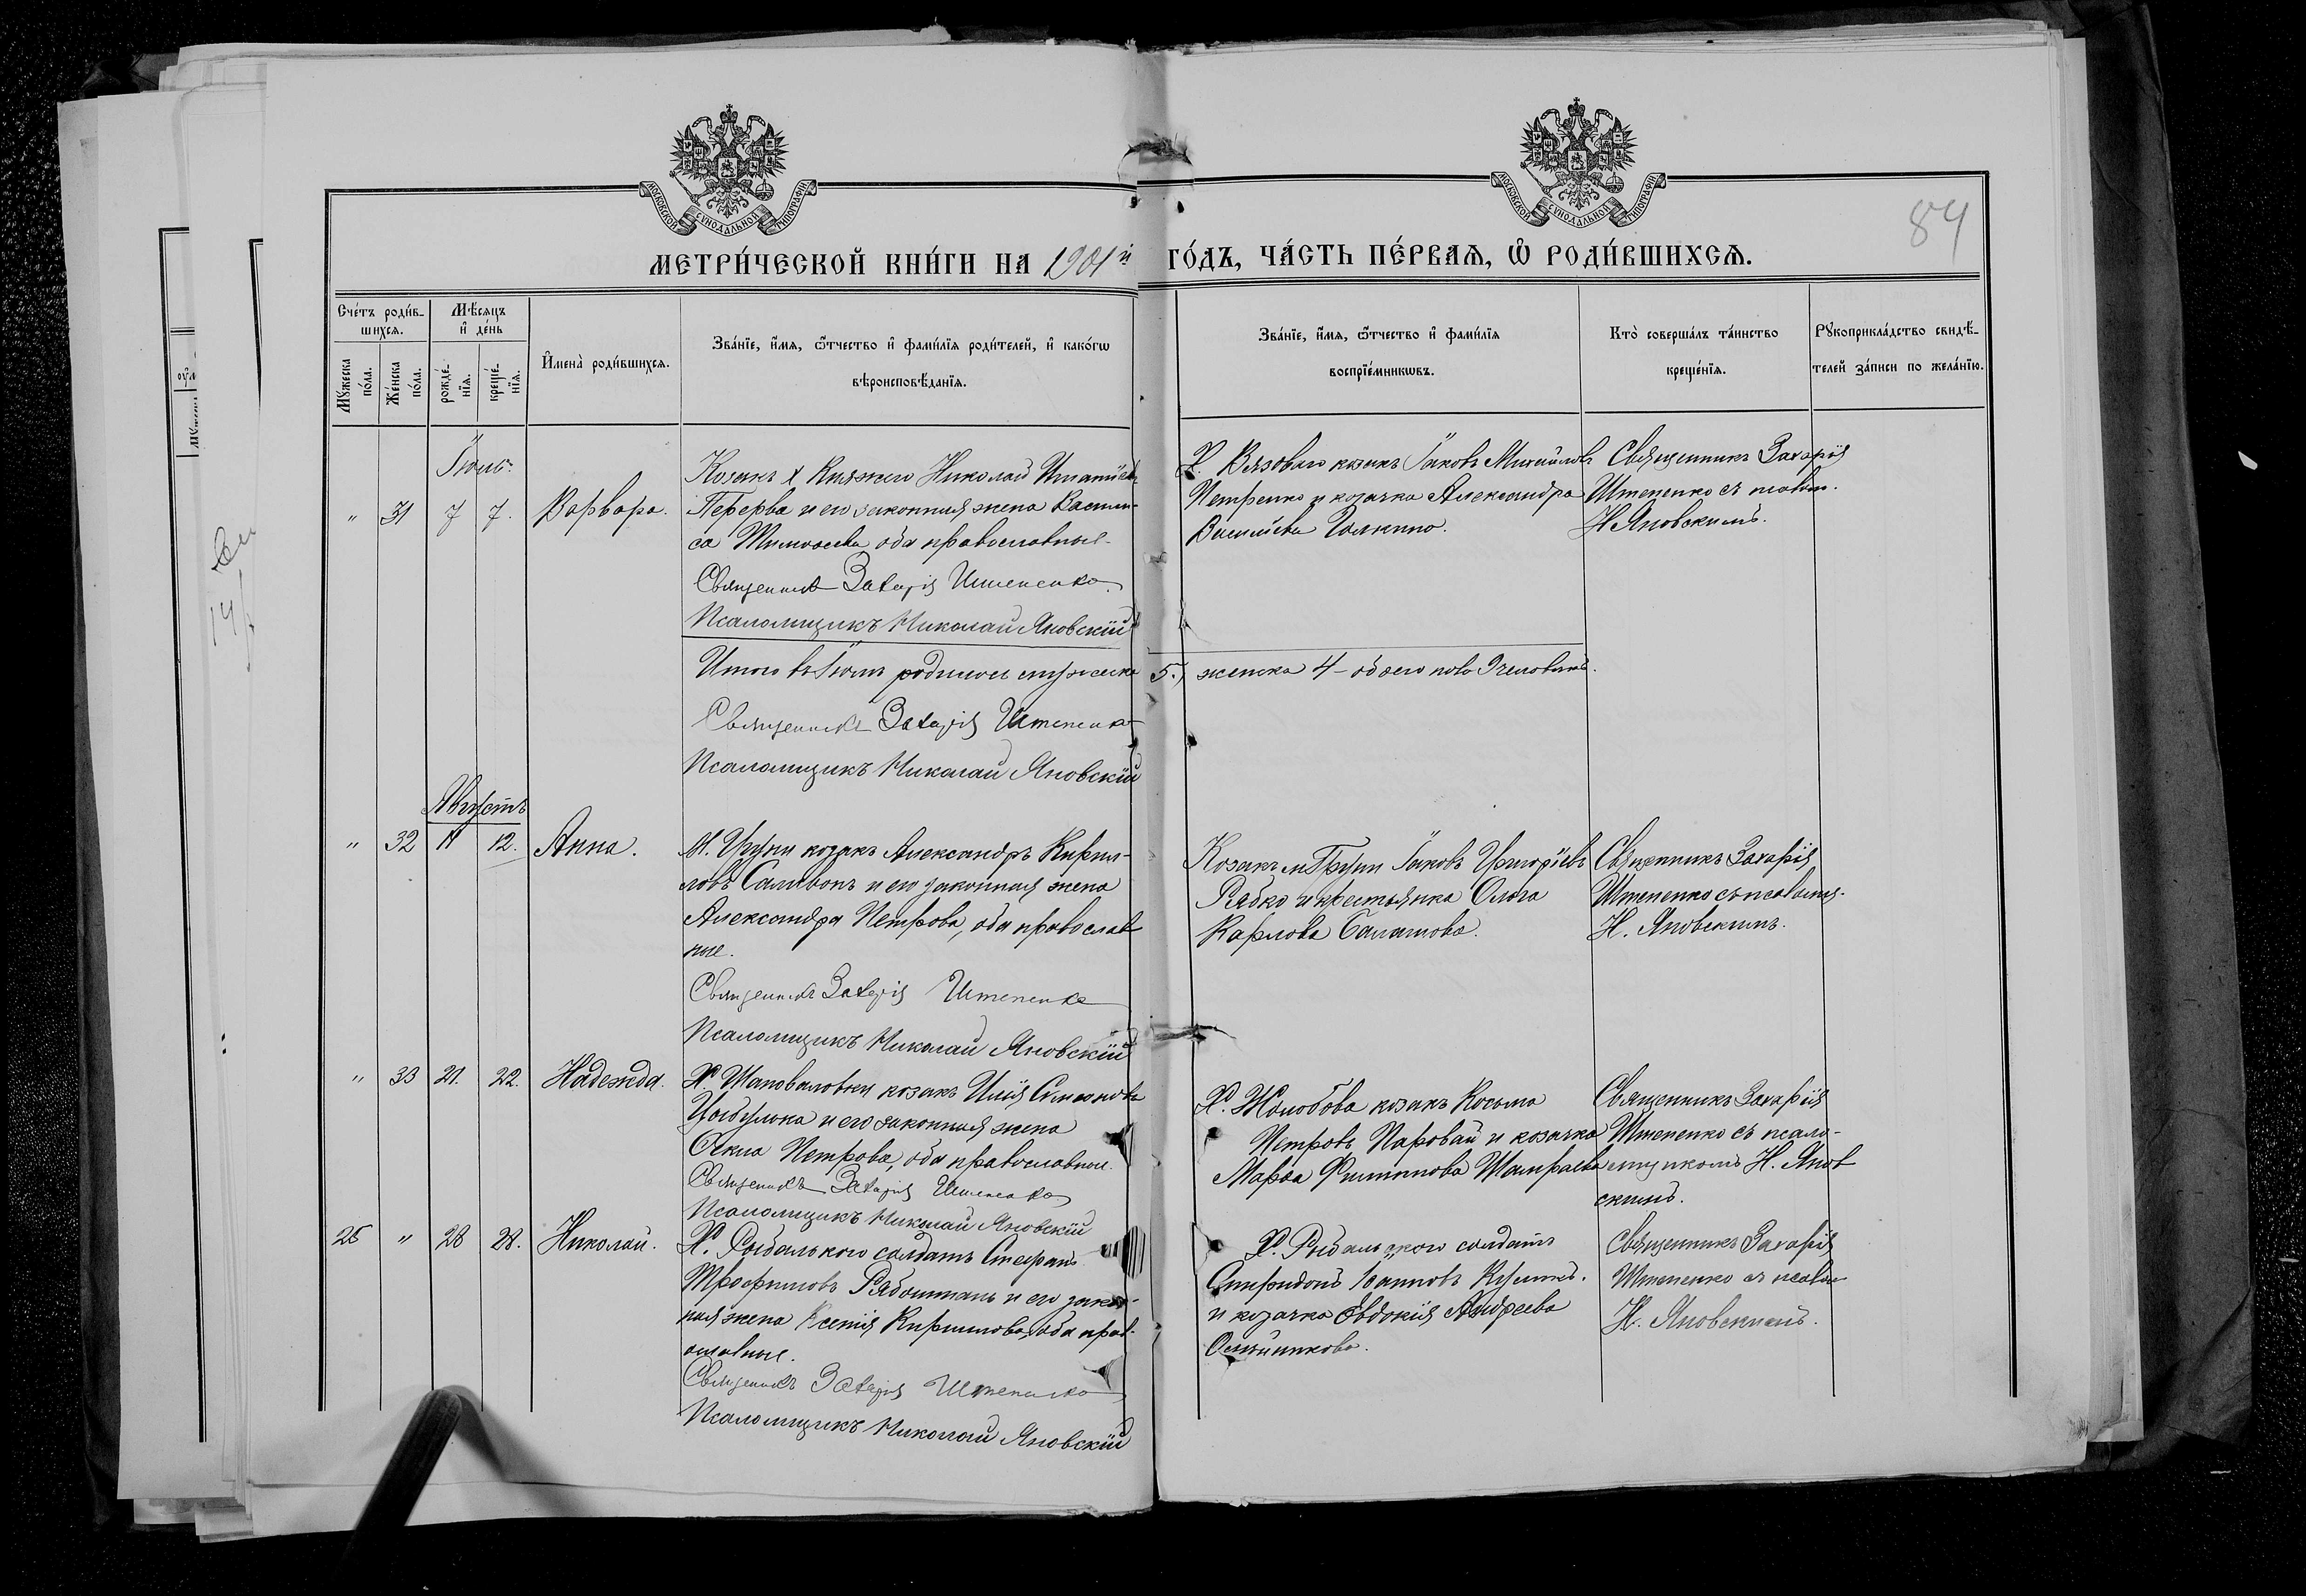 МОСКОВСКОЙ СУНОДАЛЬНОЙ ТИПОГРАФІИ
МОСКОВСКОЙ СУНОДАЛЬНОЙ ТИПОГРАФІИ
84
МЕТРИ́ЧЕСКОЙ КНИ́ГИ НА 1901й ГО́ДЪ, ЧА́СТЬ ПЕ́РВАѦ, Ѿ РОДИ́ВШИХСѦ.
Сче́тъ роди́в-
шихсѧ.
Мꙋ́жеска по́ла.
Же́нска по́ла.
Мѣ́сяцъ
и҆ де́нь
рожде́-нїѧ.
креще́-нїѧ.
И҆мена̀ роди́вшихсѧ.
Зва́нїе, и҆́мѧ, ѻ҆́тчество и҆ фами́лїѧ роди́телей, и҆ како́гѡ
вѣроисповѣ́данїѧ.
Зва́нїе, и҆́мѧ, ѻ҆́тчество и҆ фами́лїѧ
воспрїе́мникѡвъ.
Кто̀ соверша́лъ та́инство
креще́нїѧ.
Рꙋкоприкла́дство свидѣ́-
телей за́писи по жела́нїю.
Іюль.
" 31 7 7. Варвара.
Козакъ х Княжего Николай Игнатіевъ
Перерва и его законная жена Васили-
са Тимоѳеева оба православные.
Священникъ Захарія Штепенко
Псаломщикъ Николай Яновскій
Х. Вязоваго козакъ Іаковъ Михайловъ
Петренко и козачка Александра
Васильева Галкина.
Священникъ Захарія
Штепенко съ псалом.
Н Яновскимъ.
Итого въ Іюлѣ родилось мужеска 5, женска 4 - обоего пола 9 человѣкъ.
Священникъ Захарія Штепенко
Псаломщикъ Николай Яновскій
Августъ
" 32 11 12. Анна.
М. Груни козакъ Александръ Кирил-
ловъ Саливонъ и его законная жена
Александра Петрова, оба православ
ные.
Священникъ Захарія Штепенко
Псаломщикъ Николай Яновскій
Козакъ м Груни Іаковъ Григоріевъ
Рябко и крестьянка Ольга
Карлова Балашова.
Священникъ Захарія
Штепенко съ псаломщ.
Н. Яновскимъ.
" 33 21. 22. Надежда.
Х. Шаповаловки козакъ Илія Симеоновъ
Цыбулька и его законная жена
Ѳекла Петрова, оба православные.
Священникъ Захарія Штепенко
Псаломщикъ Николай Яновскій
Х. Жолобова козакъ Косьма
Петровъ Паровай и козачка
Марѳа Филиппова
Священникъ Захарія
Штепенко съ псало-
мщикомъ Н. Янов
скимъ.
25 " 28 28. Николай.
Х. Рыбальского солдатъ Стефанъ
Трофимовъ Рябоштанъ и его закон-
ная жена Ксенія Кириллова, оба прав-
ославные.
Священникъ Захарія Штепенко
Псаломщикъ Николай Яновскій
Х. Рыбальского солдатъ
Спиридонъ Іоанновъ
и козачка Евдокія Андреева
Олейникова.
Священникъ Захарія
Штепенко съ псалом
Н. Яновскимъ.